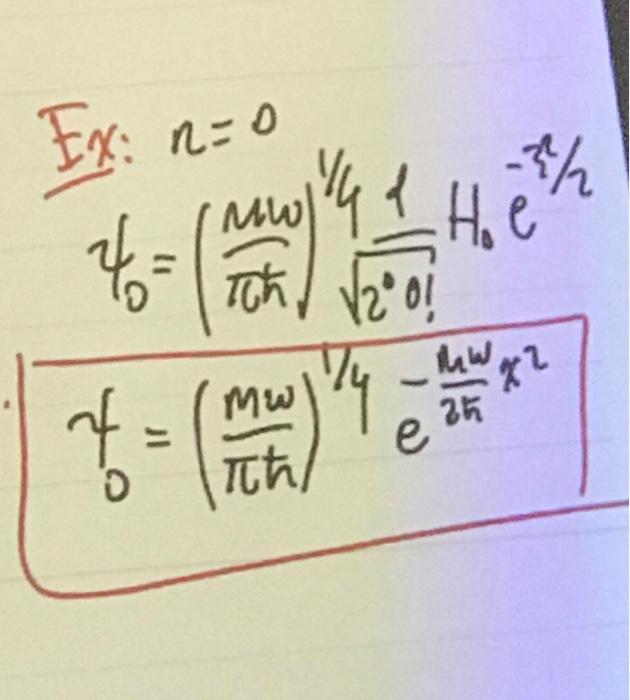 Ex: n = 0
ψ₀ = (mω/πħ)^1/4 1/√(2⁰ 0!) H₀ e^-ξ²/2
ψ₀ = (mω/πħ)^1/4 e^-mω/2ħ x²